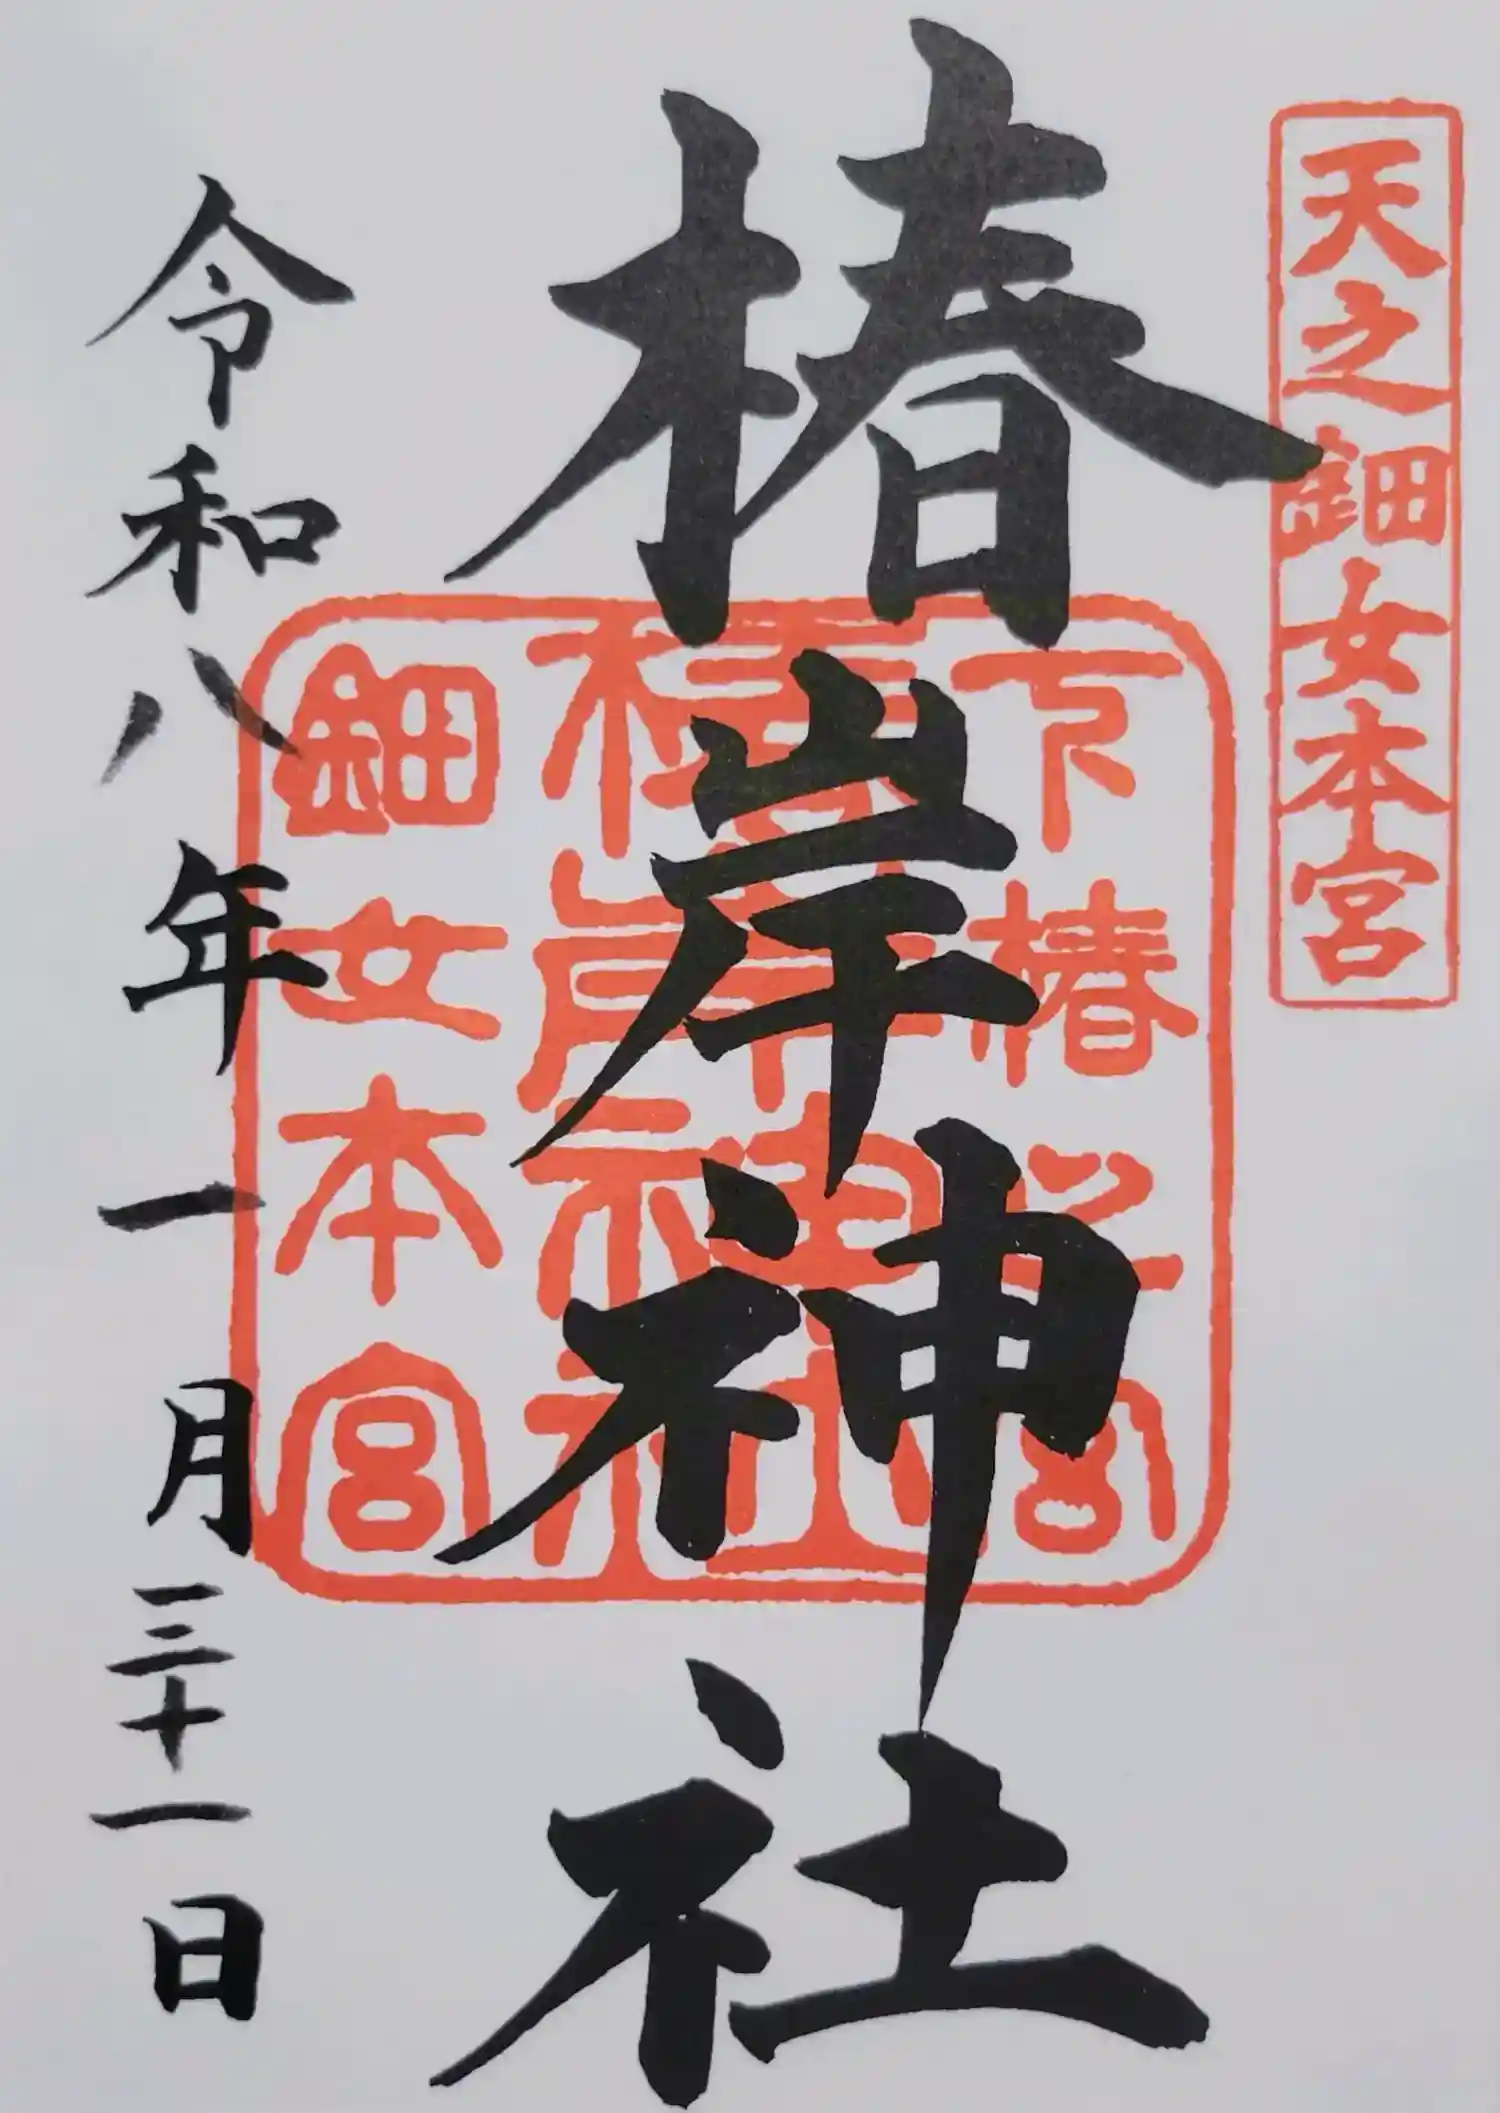 天之鈿女本宮
椿岸神社
下椿之宮
椿岸神社
鈿女本宮
令和八年一月三十一日